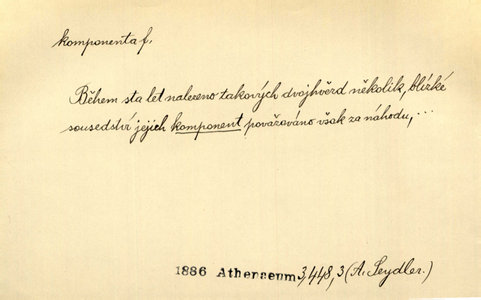 komponenta f.
Během sta let nalezeno takových dvojhvězd několik, blízké
sousedství jejich komponent považováno však za náhodu, ...
1886 Athenaeum 3,448,3 (A. Seydler.)